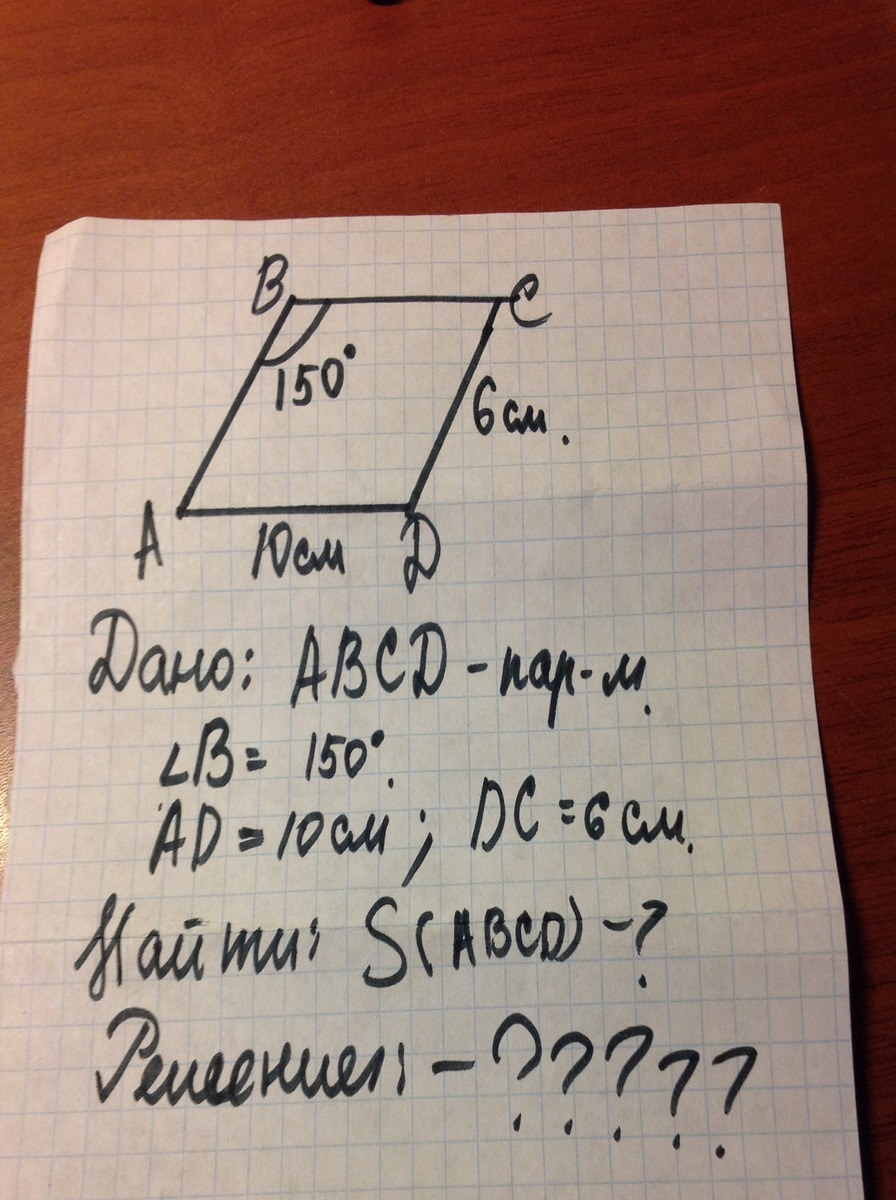 B C
150°
6 см.
A 10 см D
Дано: ABCD - пар-м.
∠B = 150°.
AD = 10 см ; DC = 6 см.
Найти: S(ABCD) - ?
Решение: - ?????